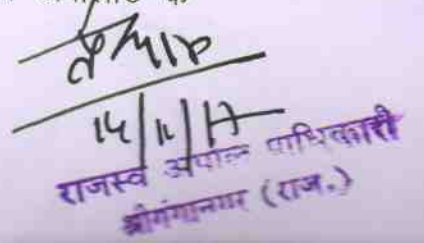 14/11/17
राजस्व अपील प्राधिकारी
श्रीगंगानगर (राज.)